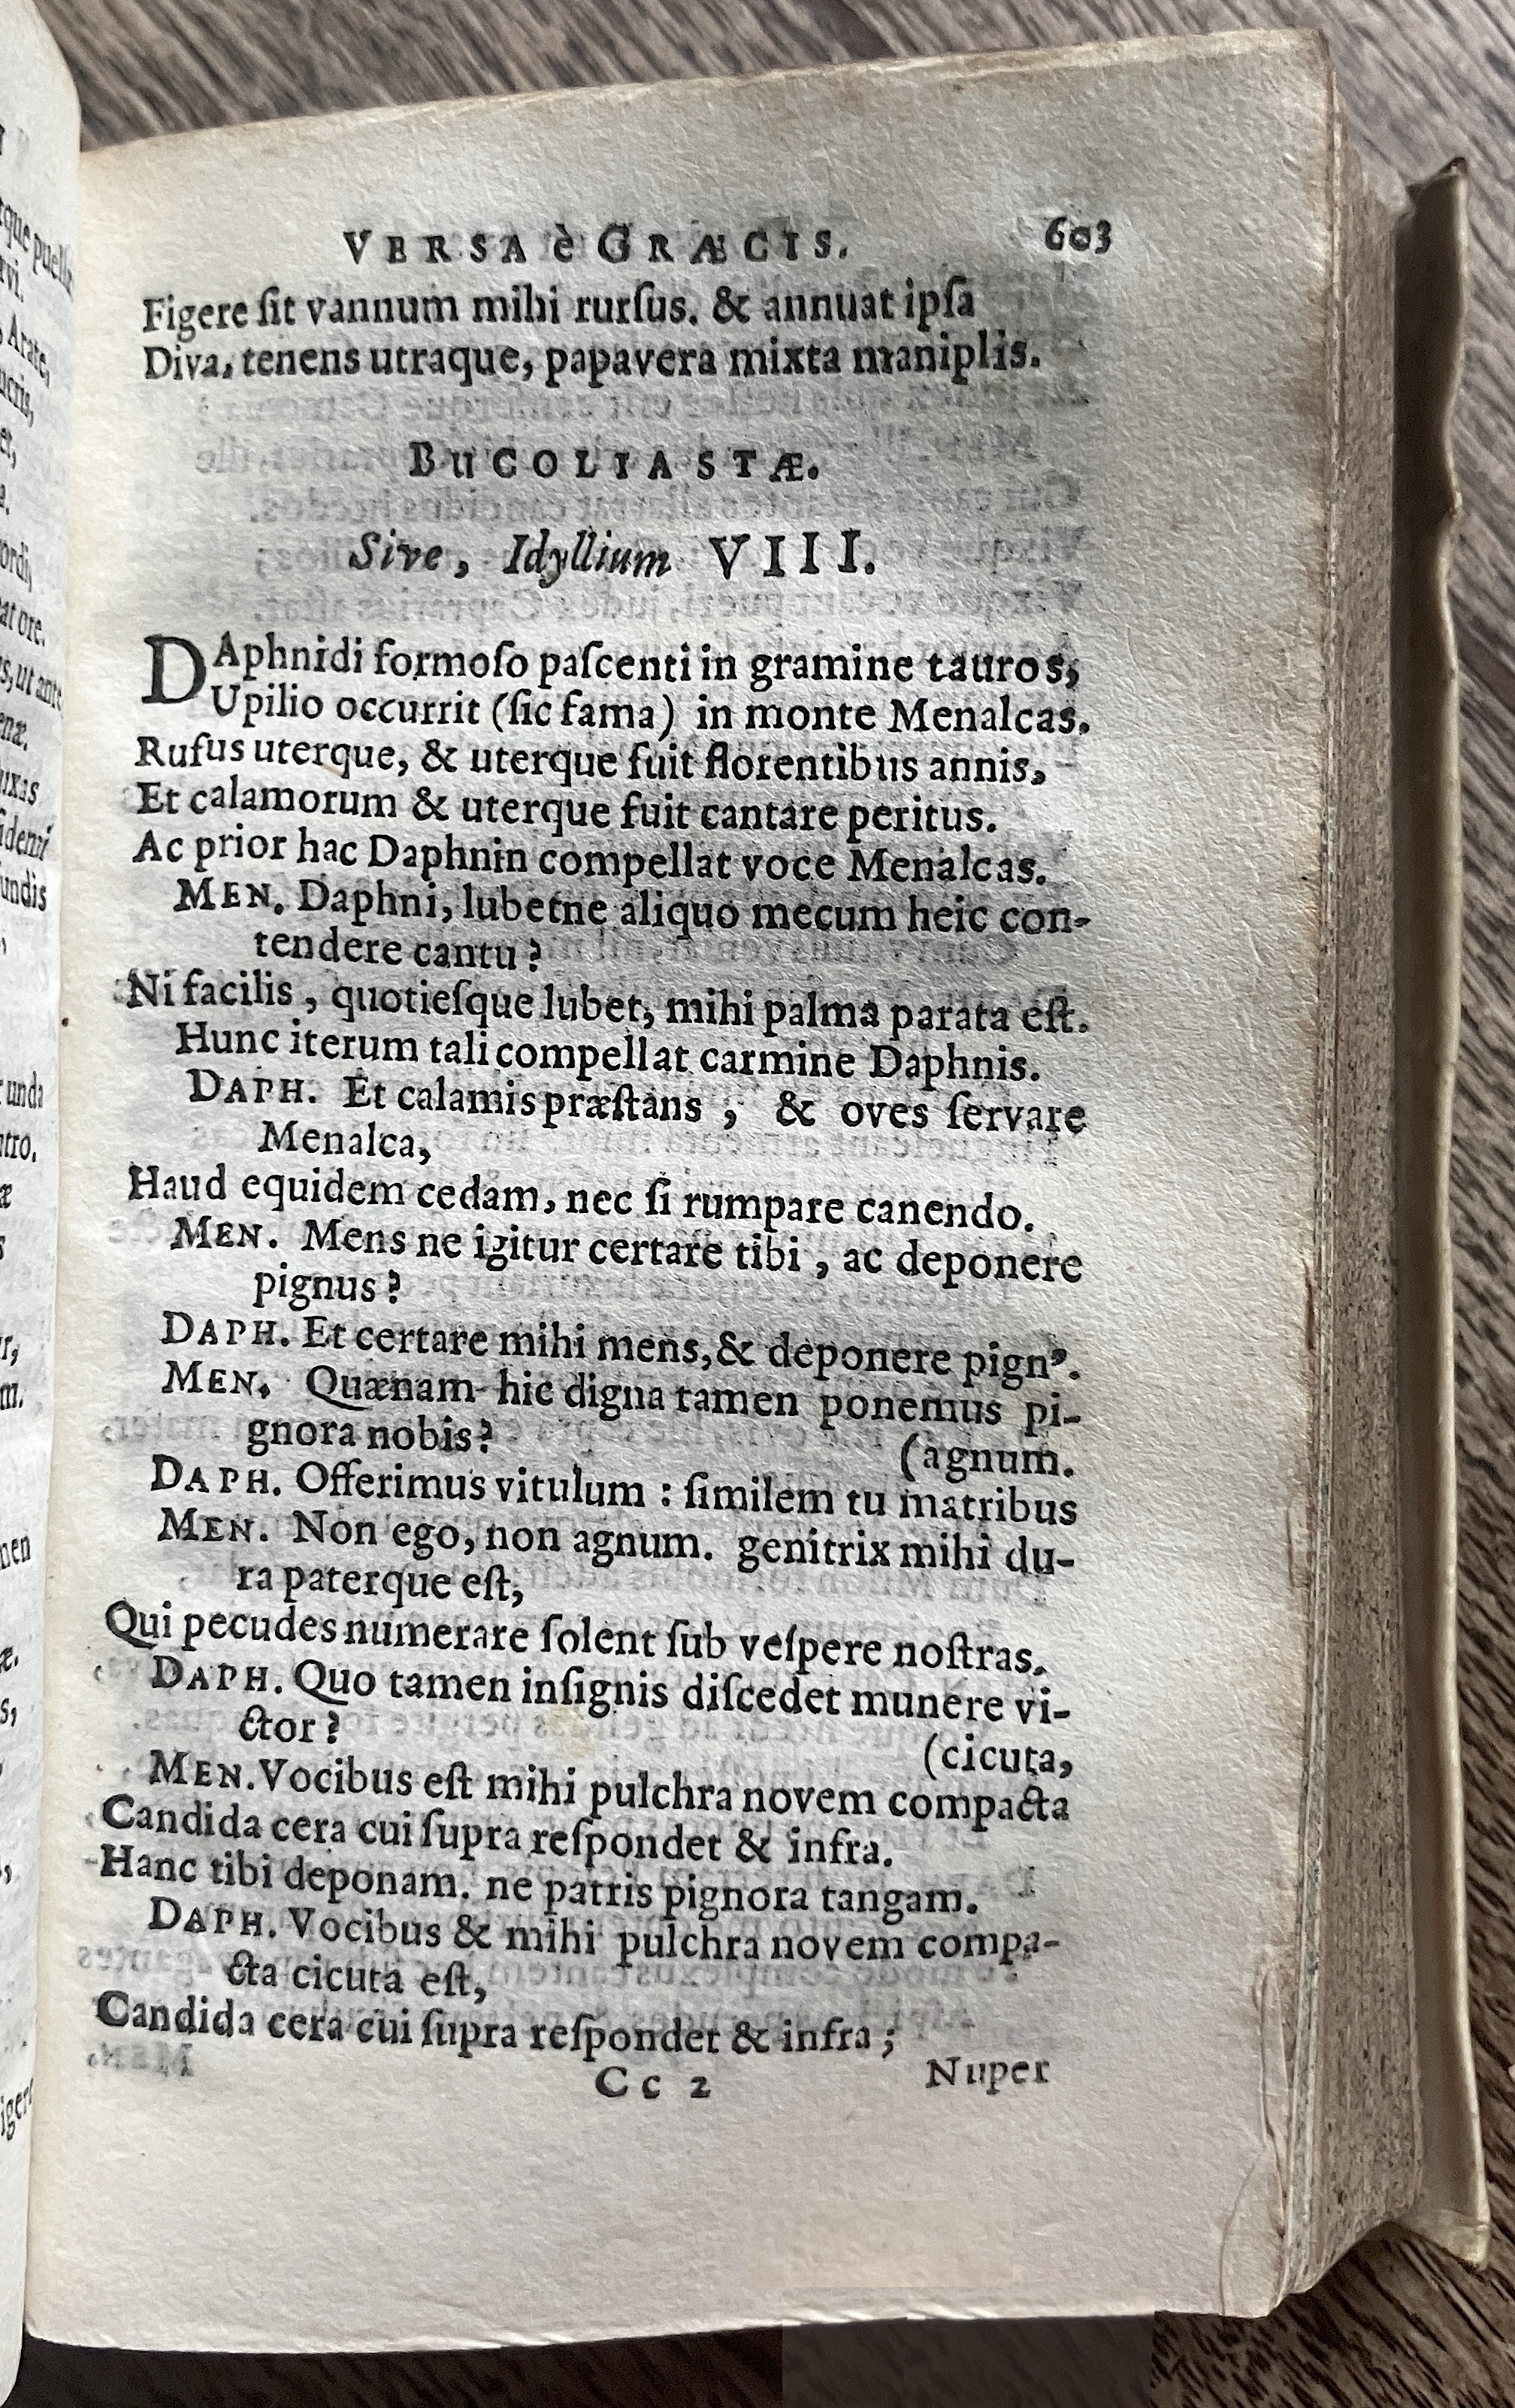 VERSA è GRÆCIS. 603
Figere ſit vannum mihi rurſus. & annuat ipſa
Diva, tenens utraque, papavera mixta maniplis.
BuCOLIASTÆ.
Sive, Idyllium VIII.
DAphnidi formoſo paſcenti in gramine tauros,
Upilio occurrit (ſic fama) in monte Menalcas.
Rufus uterque, & uterque fuit florentibus annis,
Et calamorum & uterque fuit cantare peritus.
Ac prior hac Daphnin compellat voce Menalcas.
MEN. Daphni, lubetne aliquo mecum heic con-
tendere cantu?
Ni facilis, quotieſque lubet, mihi palma parata eſt.
Hunc iterum tali compellat carmine Daphnis.
DAPH. Et calamis præſtans, & oves ſervare
Menalca,
Haud equidem cedam, nec ſi rumpare canendo.
MEN. Mens ne igitur certare tibi, ac deponere
pignus?
DAPH. Et certare mihi mens, & deponere pignꝰ.
MEN. Quænam hic digna tamen ponemus pi-
gnora nobis? (agnum.
DAPH. Offerimus vitulum: ſimilem tu matribus
MEN. Non ego, non agnum. genitrix mihi du-
ra paterque eſt,
Qui pecudes numerare ſolent ſub veſpere noſtras.
DAPH. Quo tamen inſignis diſcedet munere vi-
ctor? (cicuta,
MEN. Vocibus eſt mihi pulchra novem compacta
Candida cera cui ſupra reſpondet & infra.
Hanc tibi deponam. ne patris pignora tangam.
DAPH. Vocibus & mihi pulchra novem compa-
cta cicuta eſt,
Candida cera cui ſupra reſpondet & infra;
Cc 2 Nuper